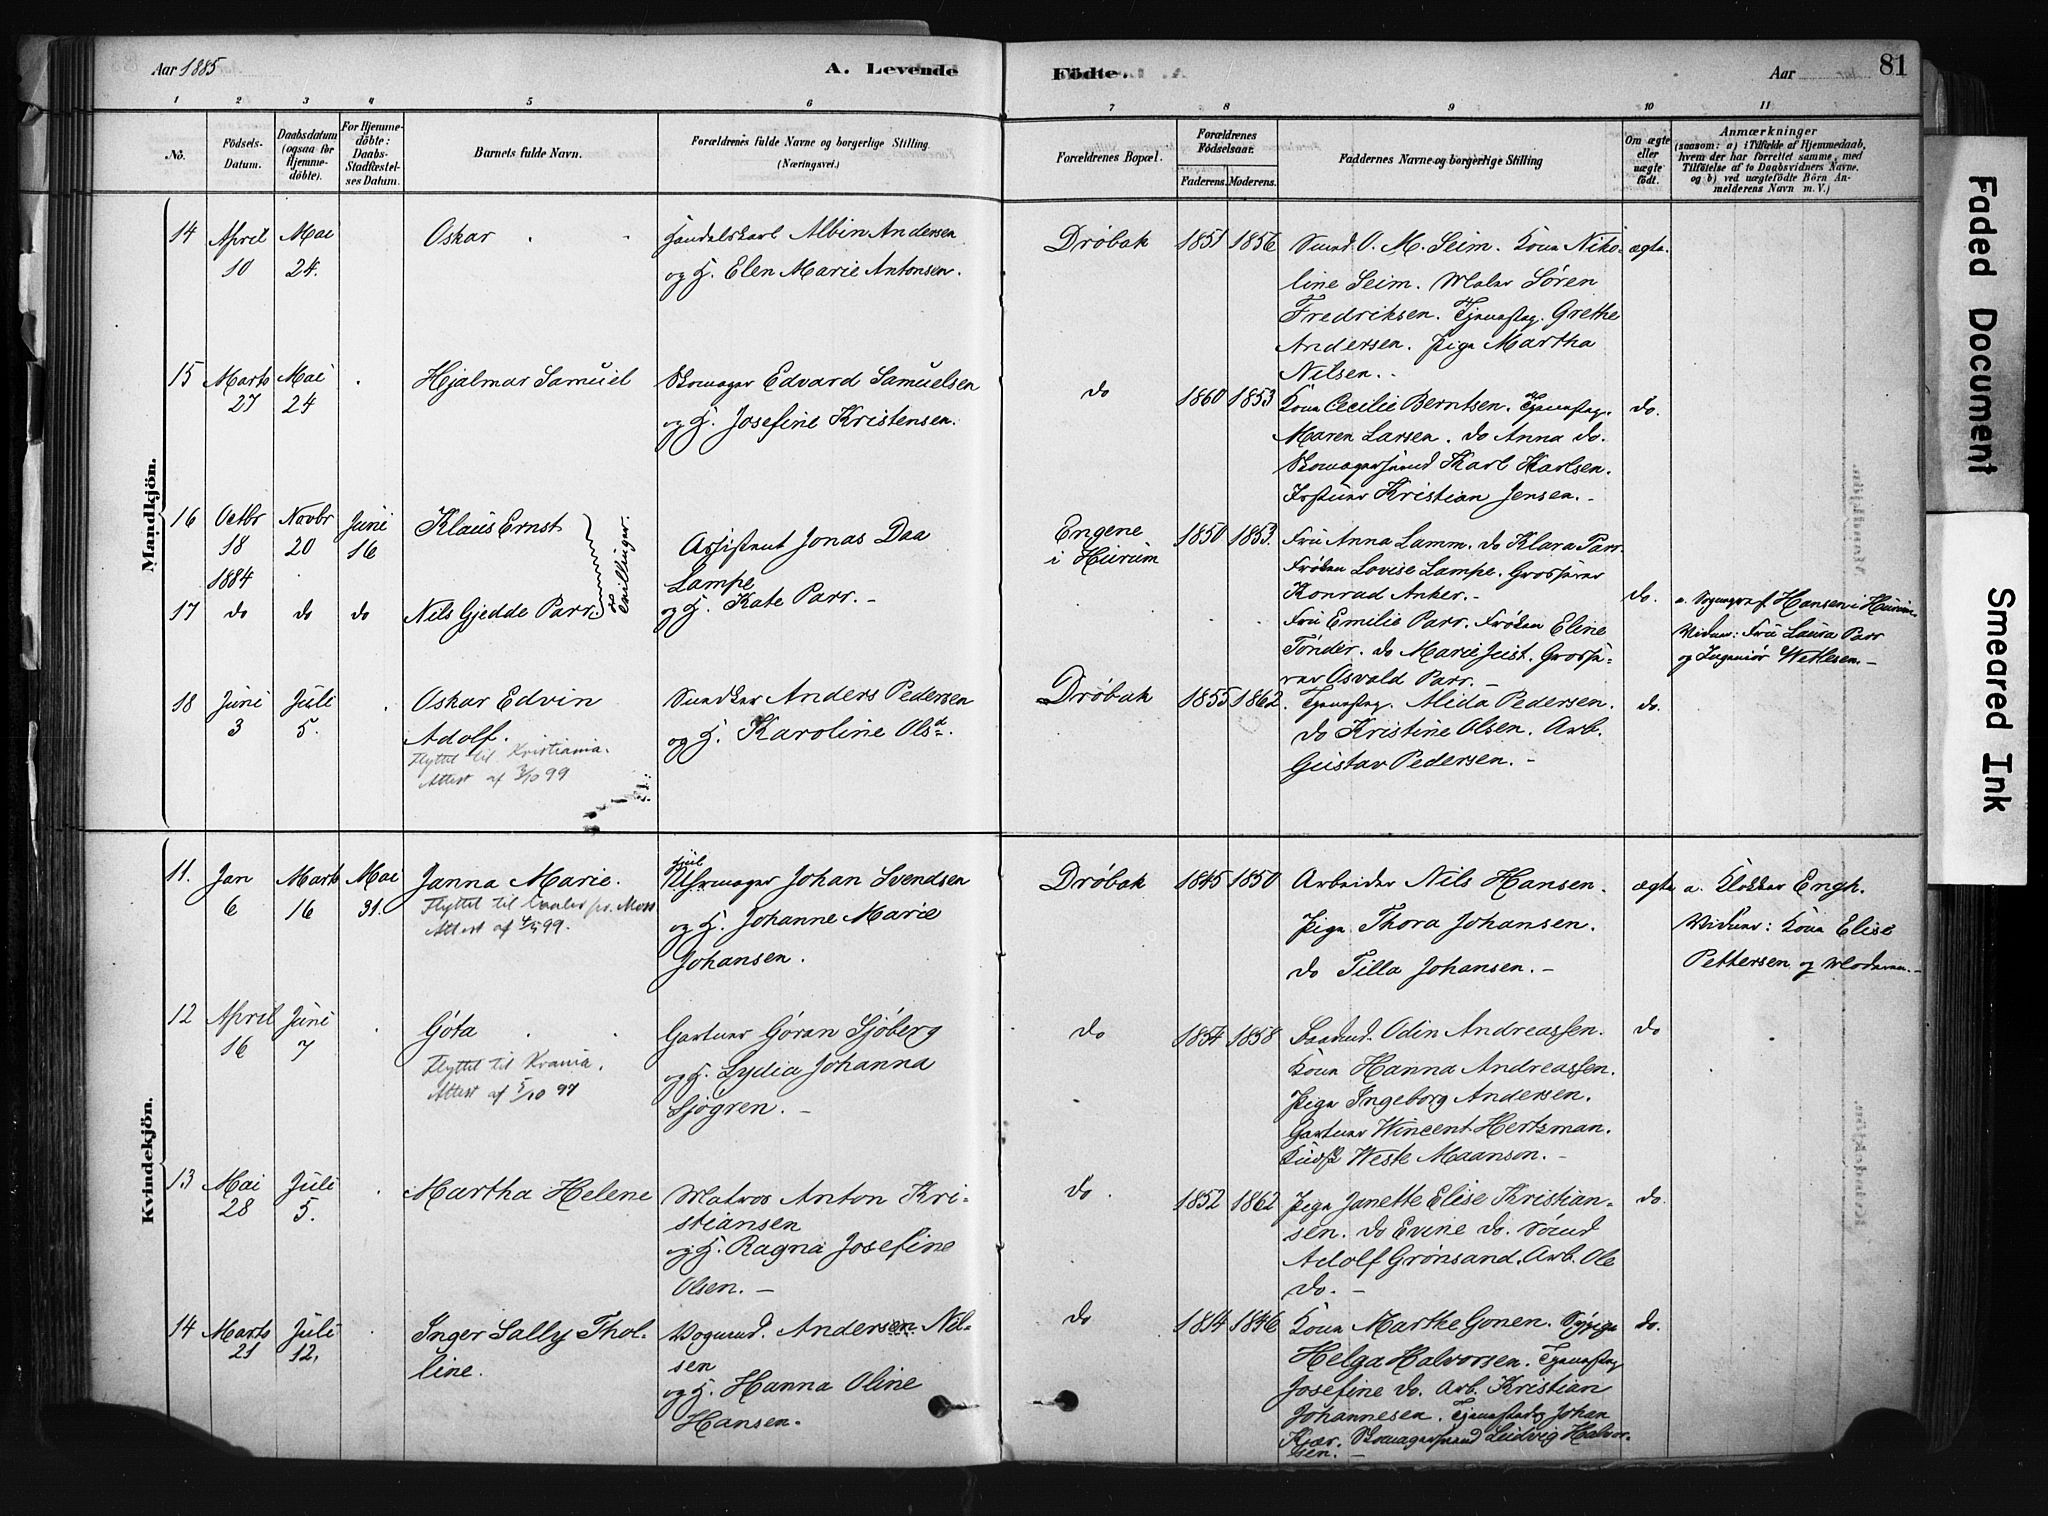 Aar 1885
A. Levende
Födte.
Aar
81
1 2 3 4 5 6 7 8 9 10 11
No.
Födsels-
Datum.
Daabsdatum
(ogsaa for
Hjemme-
döbte).
For Hjemme-
döbte:
Daabs-
Stadfæstel-
ses Datum.
Barnets fulde Navn.
Forældrenes fulde Navne og borgerlige Stilling
(Næringsvei.)
Forældrenes Bopæl.
Forældrenes
Födselsaar.
Faderens.
Moderens.
Faddernes Navne og borgerlige Stilling
Om ægte
eller
uægte
födt.
Anmærkninger
(saasom: a) i Tilfælde af Hjemmedaab,
hvem der har forrettet samme, med
Tilföielse af to Daabsvidners Navne.
og b) ved uægtefödte Börn An-
melderens Navn m. V.)
Mandkjön.
14
April
10
Mai
24.
Oskar
Handelskarl Albin Andersen
og H. Elen Marie Antonsen.
Drøbak
1851
1856
O. M. Seim. Kona Niko-
line Seim. Maler Sören
Fredriksen. Tjenestag. Grethe
Andersen. Pige Martha
Nilsen.
ægte.
15
Marts
27
Mai
24
Hjalmar Samuel
Skomager Edvard Samuelsen
og H. Josefine Kristensen.
do
1860
1853
Kona Cecilie Berntsen. Tjenestag.
Maren Larsen. do Anna do.
Skomagersvend Karl Karlsen.
Kristian Jensen. -
do.
16
Octbr
18
1884
Novbr
20
Juni
16
Klaus Ernst
Tvillinger.
Assistent Jonas Daa
Lampe
og H. Kate Parr. -
Engene
i Hurum
1850
1853.
Frü Anna Lamm. do Klara Parr.
Fröken Lovise Lampe. Grosserer
Konrad Anker. -
17
do
do
do
Nils Gjedde Parr
Frü Emilie Parr. Fröken Eline
Tönder. do Marie Jeist. Grosse-
rer Osvald Parr. -
do.
a. Sogneprest Hansen i Hurum
Vidner: Frü Laura Parr
og Ingeniör Wetlesen. -
18
Juni
3
Juli
5.
Oskar Edvin
Adolf.
Flyttet til Kristiania.
Attest af 3/10 99
Anders Pedersen
og H. Karoline Olsn.
Drøbak
1855
1862
Tjenestag. Alida Pedersen.
do Kristine Olsen. Arb.
Gustav Pedersen. -
do.
Kvindekjön.
11.
Jan
6
Marts
16
Mai
31.
Janna Marie.
Flyttet til Vaaler pr. Moss
Attest af 4/5 99.
Uhrmager Johan Svendsen
og H. Johanne Marie
Johansen.
Drøbak
1845
1850
Arbeider Nils Hansen.
Pige Thora Johansen.
do Tilla Johansen. -
ægte
a. Klokker Engh.
Vidner: Kona Elise
Pettersen og Moderen. -
12
April
16
Juni
7
Göta
Flyttet til Krania.
Attest af 5/10 97
Gartner Göran Sjöberg
og H. Lydia Johanna
Sjögren. -
do
1854
1858
Odin Andreassen.
Kona Hanna Andreassen.
Pige Ingeborg Andersen.
Gartner Wincent Hertzman.
Kudsk Weste Maanson. -
do
13
Mai
28
Juli
5.
Martha Helene
Matros Anton Kri-
stiansen
og H. Ragna Josefine
Olsen. -
do.
1852
1862
Pige Janette Elise Kristian-
sen. do Evine do.
Adolf Grönsand. Arb. Ole
do. -
do.
14
Marts
21
Juli
12.
Inger Sally Thol-
line.
Vognmd. Andersen Nil-
sen
og H. Hanna Oline
Hansen.
do
1814
1846
Kona Marthe Gonen. Sypige
Helga Halvorsen. Tjenestag
Josefine do. Arb. Kristian
Johannesen. Johan
Kjær. Skomagersvend Ludvig Halvor-
sen. -
do.
Faded Document
Smeared Ink